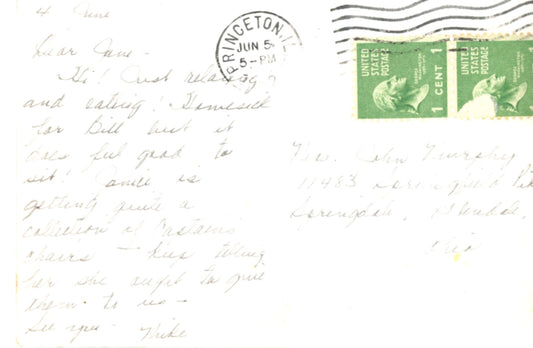 4 June
Dear Jane -
Hi! Just relaxing
and eating! Homesick
for Bill but it
does feel good to
sit! is
getting quite a
collection of
chairs - Keep telling
her she ought to give
them to us -
See you - Mike
PRINCETON, IL
JUN 5
5-PM
UNITED
STATES
POSTAGE
1 CENT 1
UNITED
STATES
POSTAGE
CENT 1
John
11483 Springfield Pike
Springdale, Glendale,
Ohio